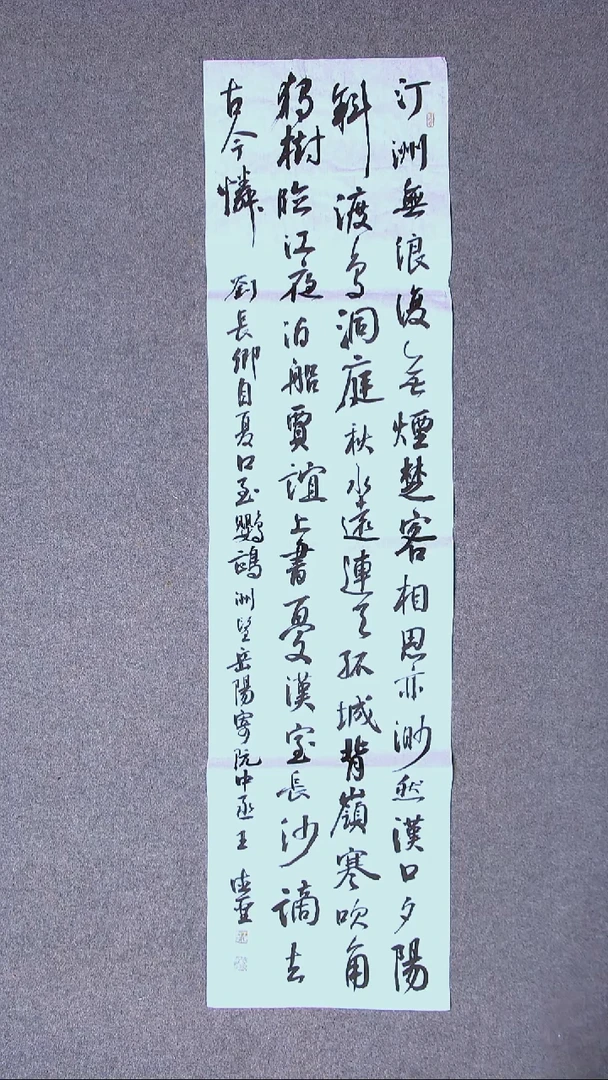 汀洲無浪復無煙楚客相思亦渺然漢口夕陽
斜渡鳥洞庭秋水遠連天孤城背嶺寒吹角
獨樹臨江夜泊船賈誼上書憂漢室長沙謫去
古今憐 劉長卿自夏口至鸚鵡洲望岳陽寄阮中丞王